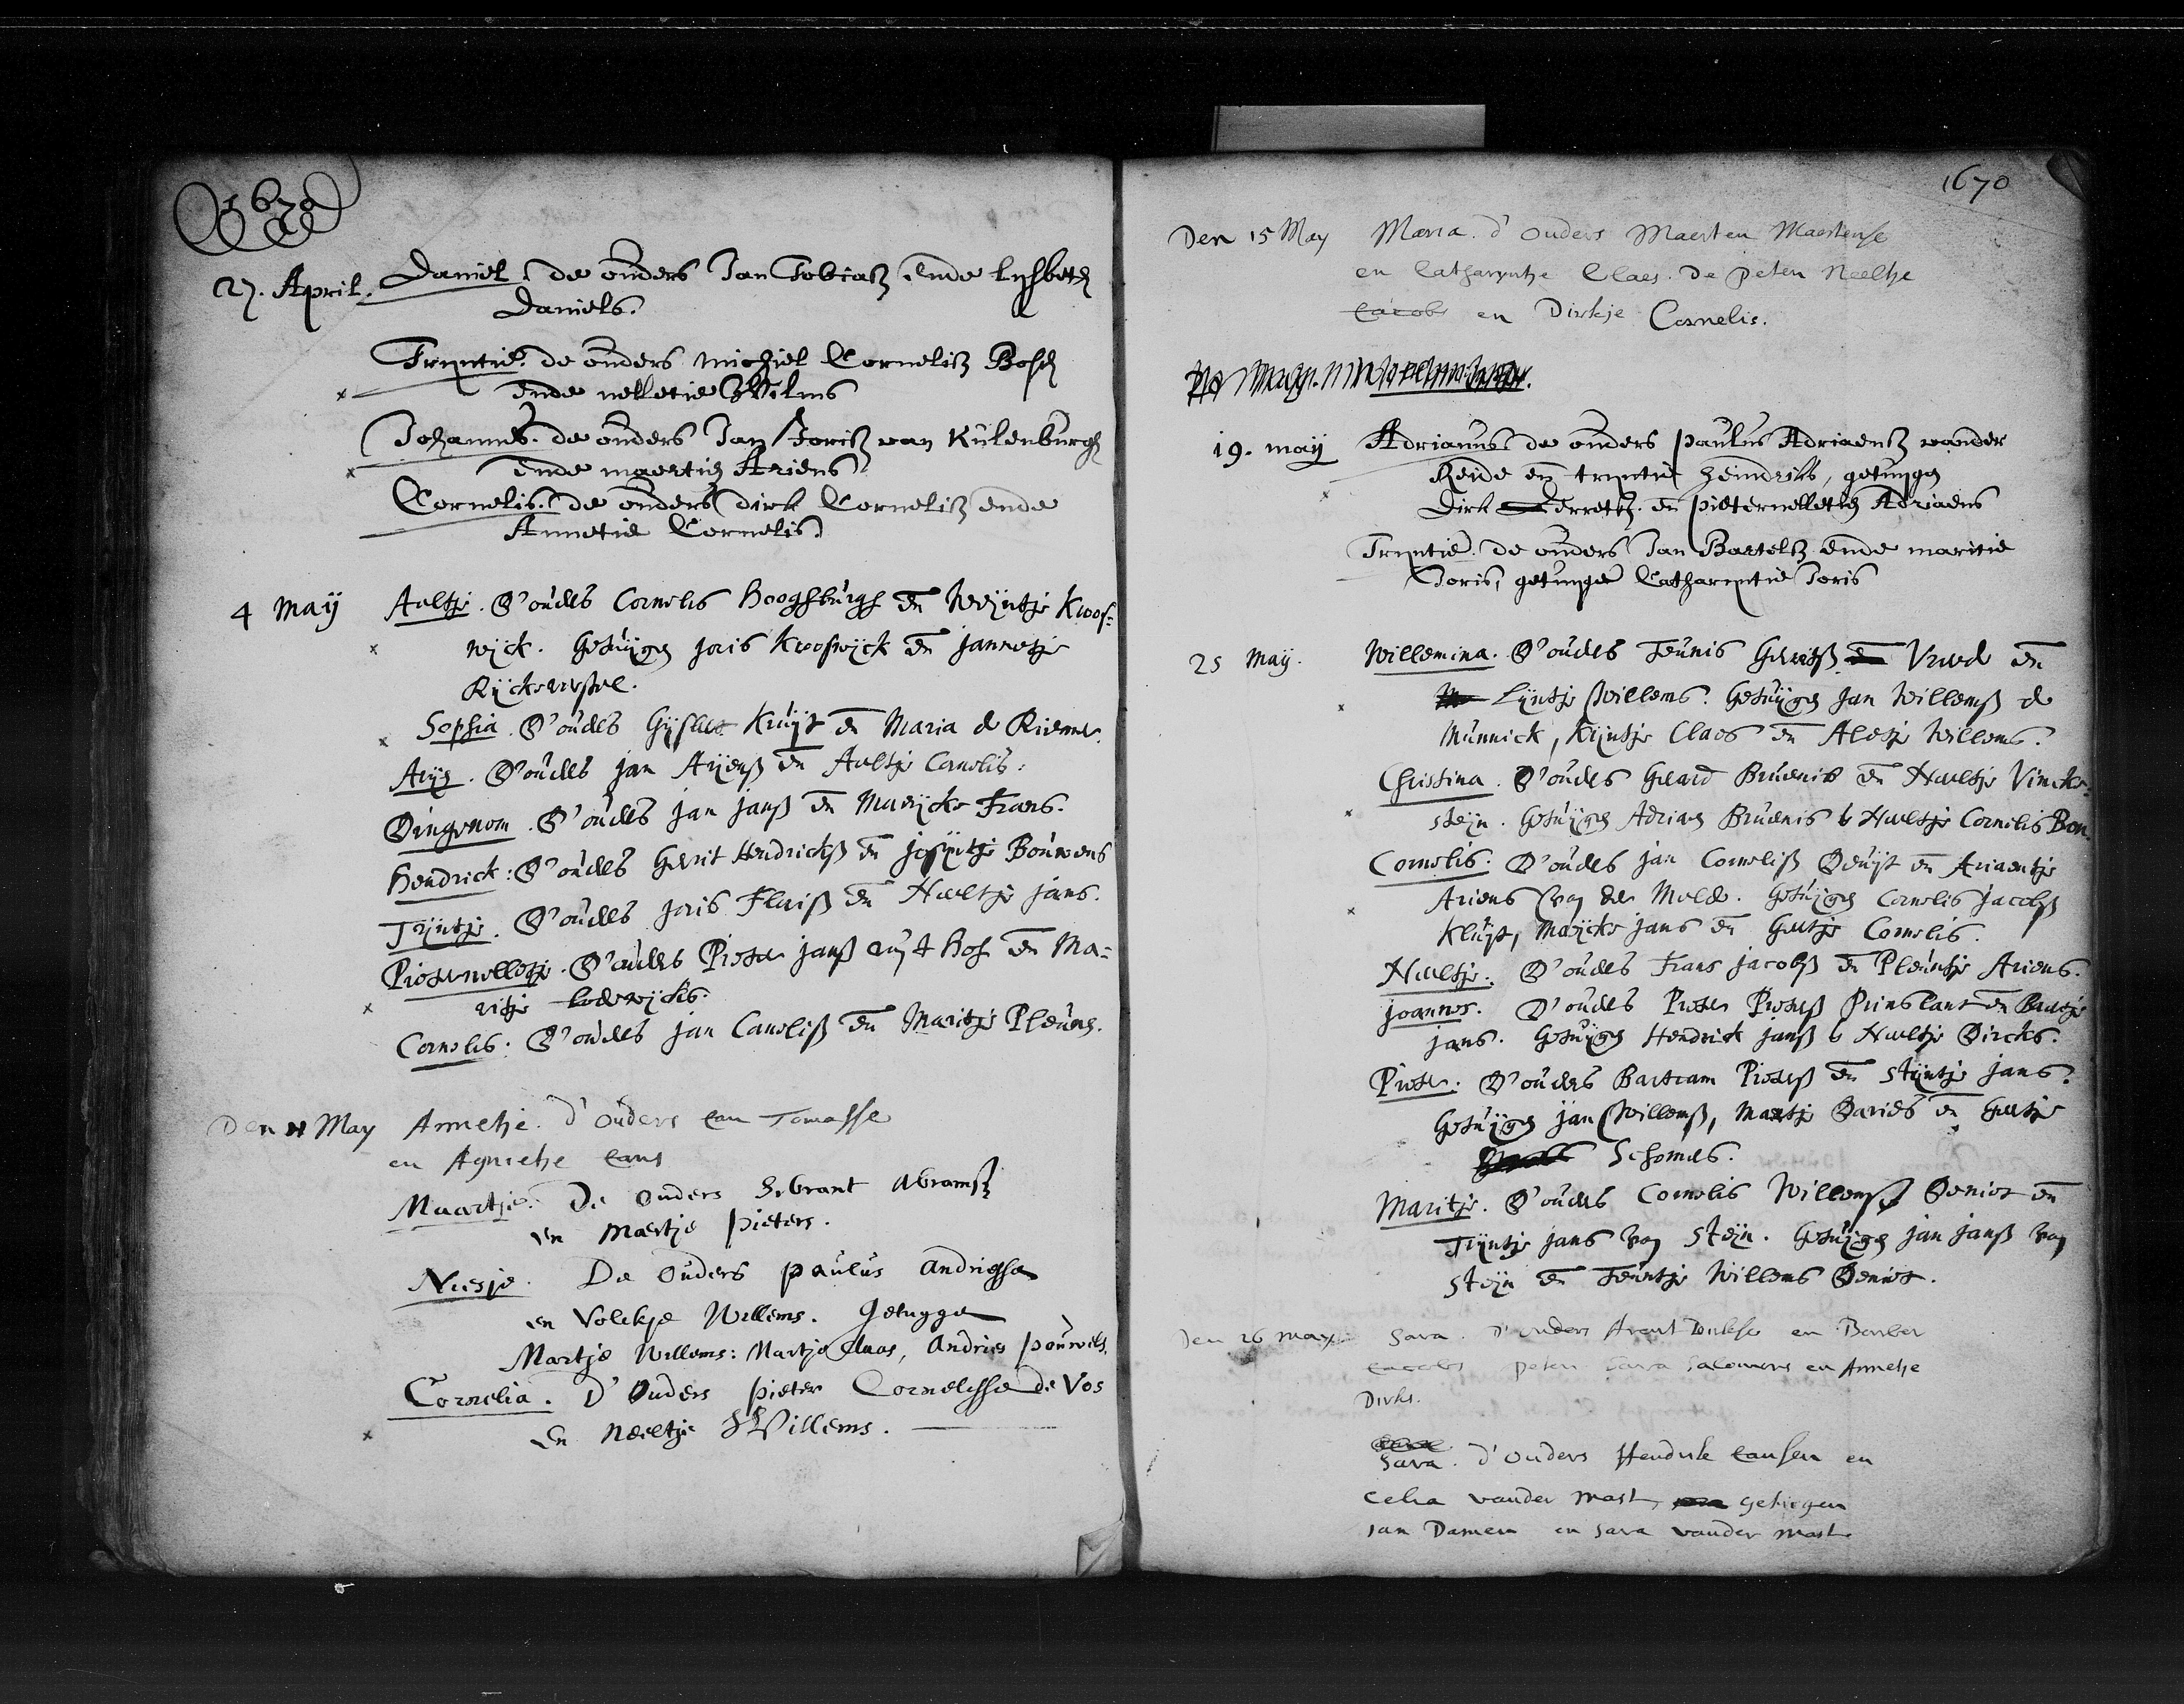 1670
27. April. Daniel. de ouders Jan Tobiasz ende Lijsbeth
Daniels.
Trijntie. de ouders Michiel Cornelisz Bosch
ende nelletie Willms
Johannes. de ouders Jan Jorisz van Kulenburgh
ende maertie Ariens
Cornelis. de ouders dirk Cornelisz ende
Annetie Cornelis.
4 Maij Aeltje. D'ouders Cornelis Hooghburgh en Weijntje Kroos-
wijck. Getuijgen Joris Krooswijck en Jannetje
Sophia. D'ouders Gijsbert Kruijt en Maria de Riemer.
Arijen. D'ouders Jan Arijensz en Aeltje Cornelis.
Dingenom. D'ouders Jan Jansz en Marijcke Frans.
Hendrick: D'ouders Gerrit Hendricksz en Josijntje Bouwens
Trijntje. D'ouders Joris Florisz en Neeltje Jans.
Pieternelletje. D'ouders Pieter Jansz uijt Hof en Ma-
ritje Lodewijcks.
Cornelis: D'ouders Jan Cornelisz en Maritje Pleunen.
Den 11 May Annetje. d'Ouders Jan Tomasse
en Agnietje Jans
Maartje. De Ouders Sibrant Abramsz
en Maertje Pieters.
Neesje. De Ouders paulus Andriesse
en Volckje Willems. Getuyge
Martje Willems: Martje Claas, Andries pouwels.
Cornelia. D'Ouders pieter Cornelisse de Vos
En Neeltje Willems.
1670
Den 15 May Maria. d'ouders Maerten Maertense
en Catharyntje Claes. de peten Neeltje
Jacobs en Dirkje Cornelis.
19. maij Adrianus de ouders paulus Adriaensz vander
Reide en trijntie Heindriks, getuijgen
Dirk Gerretsz. en pieternelletie Adriaens
Trijntie. de ouders Jan Bartelsz ende maritie
Joris, getuijge Catharijntie Joris
25 Maij. Willemina. D'ouders Teunis Gerritsz en
Lijntje Willems. Getuijgen Jan Willemsz de
Munnick, Krijntje Claes en Aletje Willems.
Christina. D'ouders Gerard Bruenis en Neeltje Vincke-
steijn. Getuijgen Adriaen Bruenis & Neeltje Cornelis Bon.
Cornelis. D'ouders Jan Cornelisz Deuijt en Ariaentje
Ariens van der Melde. Getuijgen Cornelis Jacobsz
Kluijt, Marijcke Jans en Geertje Cornelis.
Neeltje. D'ouders Frans Jacobsz en Pleuntje Ariens.
Joannes. D'ouders Pieter Pietersz Prinslant en Baertje
Jans. Getuijgen Hendrick Jansz & Neeltje Dircks.
Pieter. D'ouders Bartram Pietersz en Stijntje Jans.
Getuijgen Jan Willemsz, Martje Davids en Geertje
Schomers.
Maritje. D'ouders Cornelis Willemsz Deniet en
Trijntje Jans van Steijn. Getuijgen Jan Jansz van
Steijn en Teuntje Willems Deniet.
Den 26 may Sara. d'ouders Arent Dirkse en Berber
Jacobs peten Sara Salomons en Annetje
Dirks.
Sara. d'Ouders Hendrik Jansen en
Celia vander Mast, getuigen
Jan Damen en Sara vander Mast